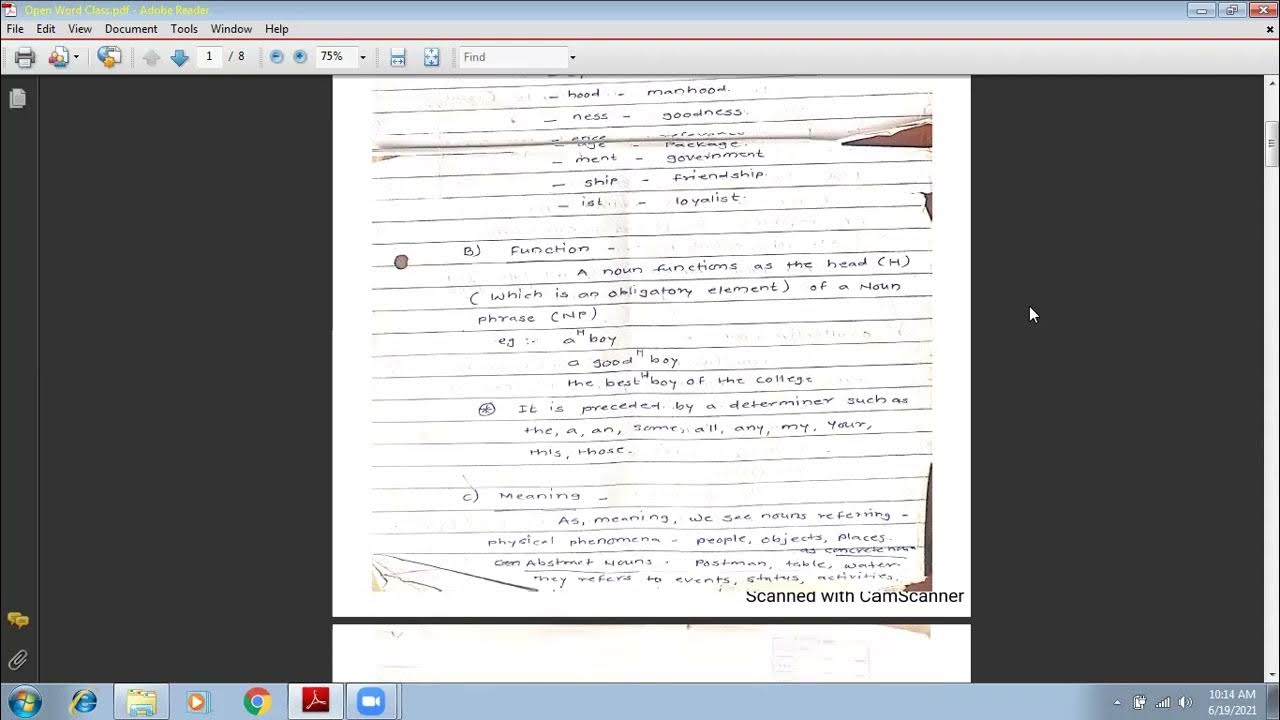 Open Word Class.pdf - Adobe Reader
File Edit View Document Tools Window Help
1 / 8 75% Find
- hood - manhood.
- ness - goodness.
- age - Package.
- ment - government
- ship - friendship.
- ist - loyalist.
B) Function -
A noun functions as the head (H)
(which is an obligatory element) of a Noun
phrase (NP)
eg :- a H boy
a good H boy
the best H boy of the college
* It is preceded by a determiner such as
the, a, an, some, all, any, my, your,
this, those.
C) Meaning -
As, meaning, we see nouns referring -
physical phenomena - people, objects, places.
as concrete noun
Abstract Nouns. Postman, table, water
They refers to events, status, activities.
Scanned with CamScanner
10:14 AM
6/19/2021